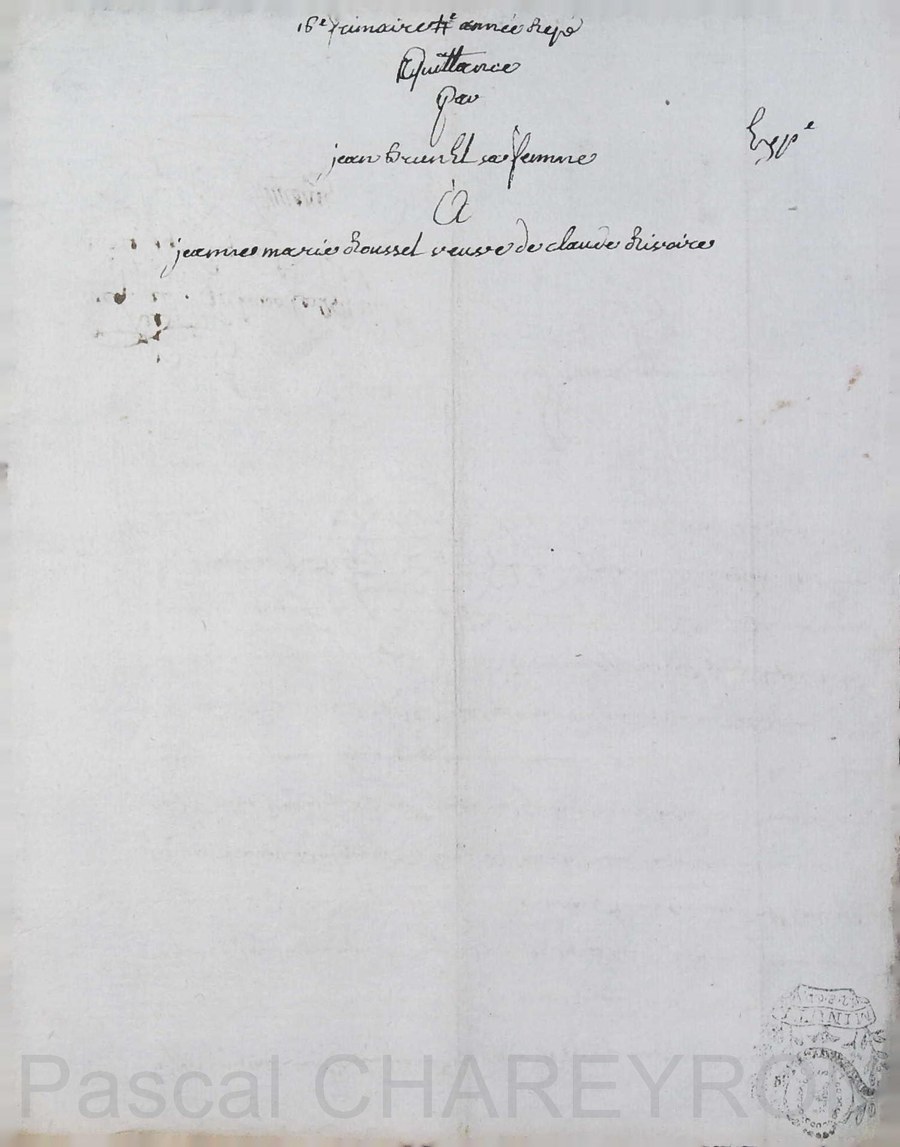 16e frimaire 4e année Repé
Quittance
Par
jean brun Et sa femme
Expe
A
jeanne marie Rousset veuve de claude Rivoire
MINUTE
Pascal CHAREYRO